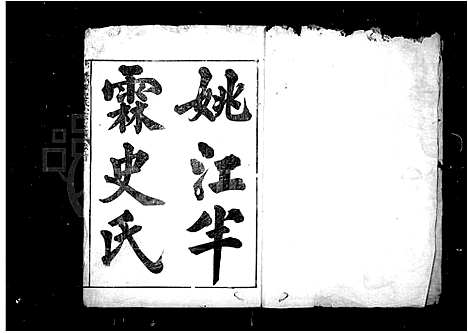 姚江半
霖史氏